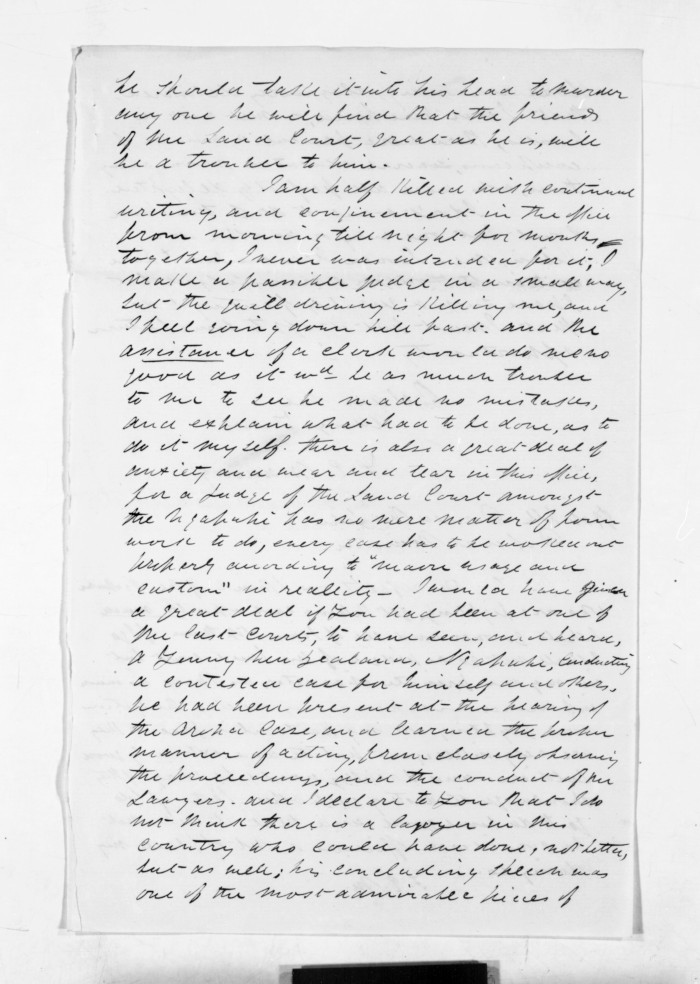 he should take it into his head to murder
any one he will find that the friends
of the Land Court, great as he is, will
be a trouble to him.
I am half killed with continual
writing, and confinement in the office
from morning till night for months
together, I never was intended for it, I
make a passible judge in a small way,
but the quill driving is killing me, and
I feel going down hill fast. and the
assistance of a clerk would do me no
good as it wd be as much trouble
to me to see he made no mistakes,
and explain what had to be done, as to
do it myself. there is also a great deal of
anxiety and wear and tear in this office,
for a Judge of the Land Court amongst
the Ngapuhi has no mere matter of form
work to do, every case has to be worked out
properly according to "maori usage and
custom" in reality - I would have given
a great deal if you had been at one of
the last Courts, to have seen, and heard,
a young New Zealand, Ngapuhi, conducting
a contested case for himself and others,
he had been present at the hearing of
the Aroha Case, and learned the proper
manner of acting, from closely observing
the proceedings, and the conduct of the
Lawyers. and I declare to you that I do
not think there is a lawyer in this
country who could have done, not better,
but as well; his concluding speech was
one of the most admirable pieces of